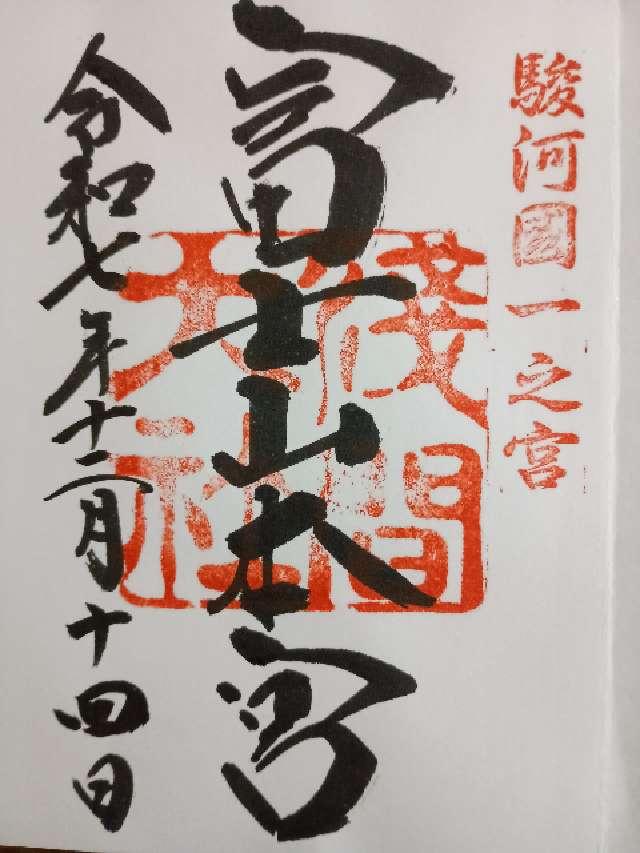 駿河國一之宮
富士山本宮
淺間大社
令和七年十二月十四日